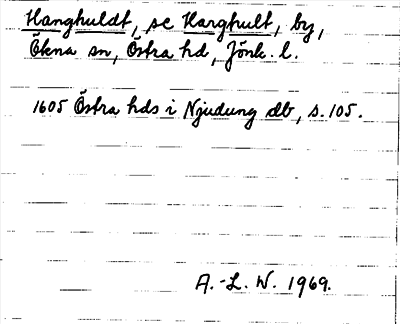 Hanghuldt, se Karghult, by,
Ökna sn, Östra hd, Jönk. l.
1605 Östra hds i Njudung db, s. 105.
A.-L. W. 1969.